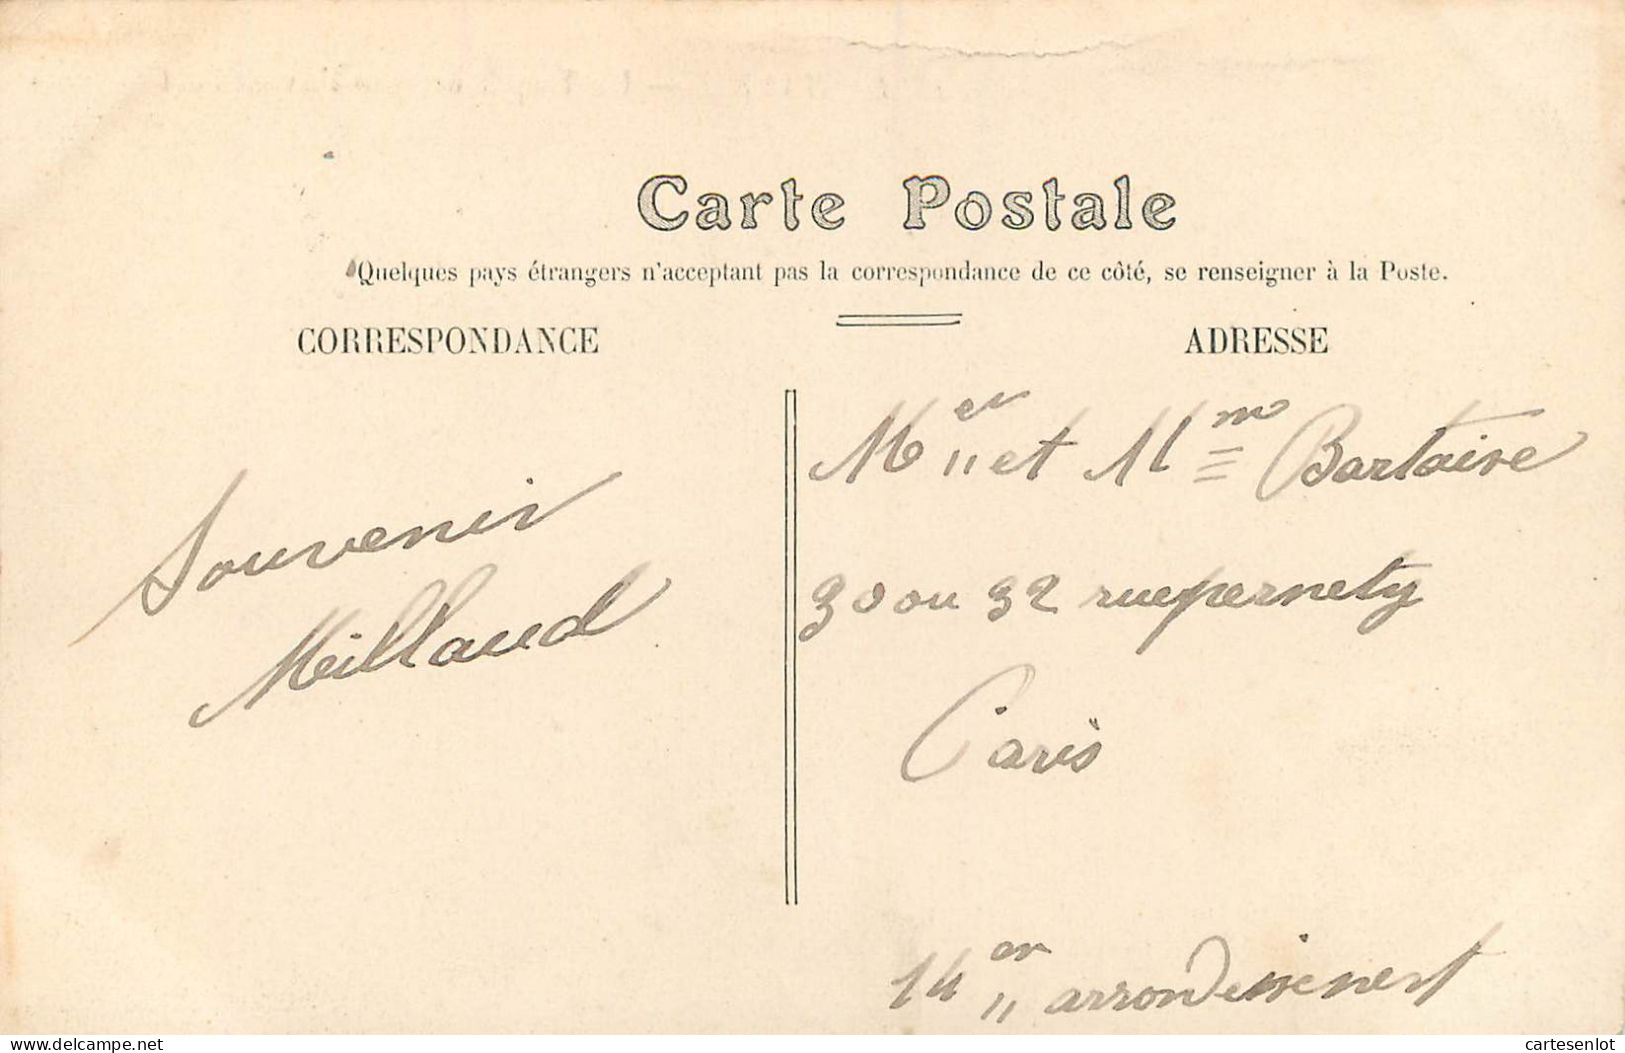 Carte Postale
Quelques pays étrangers n'acceptant pas la correspondance de ce côté, se renseigner à la Poste.
CORRESPONDANCE
ADRESSE
Souvenir
Millaud
Mer et Mm Bartaire
30 ou 32 rue pernety
Paris
14er arrondissement
cartesenlot